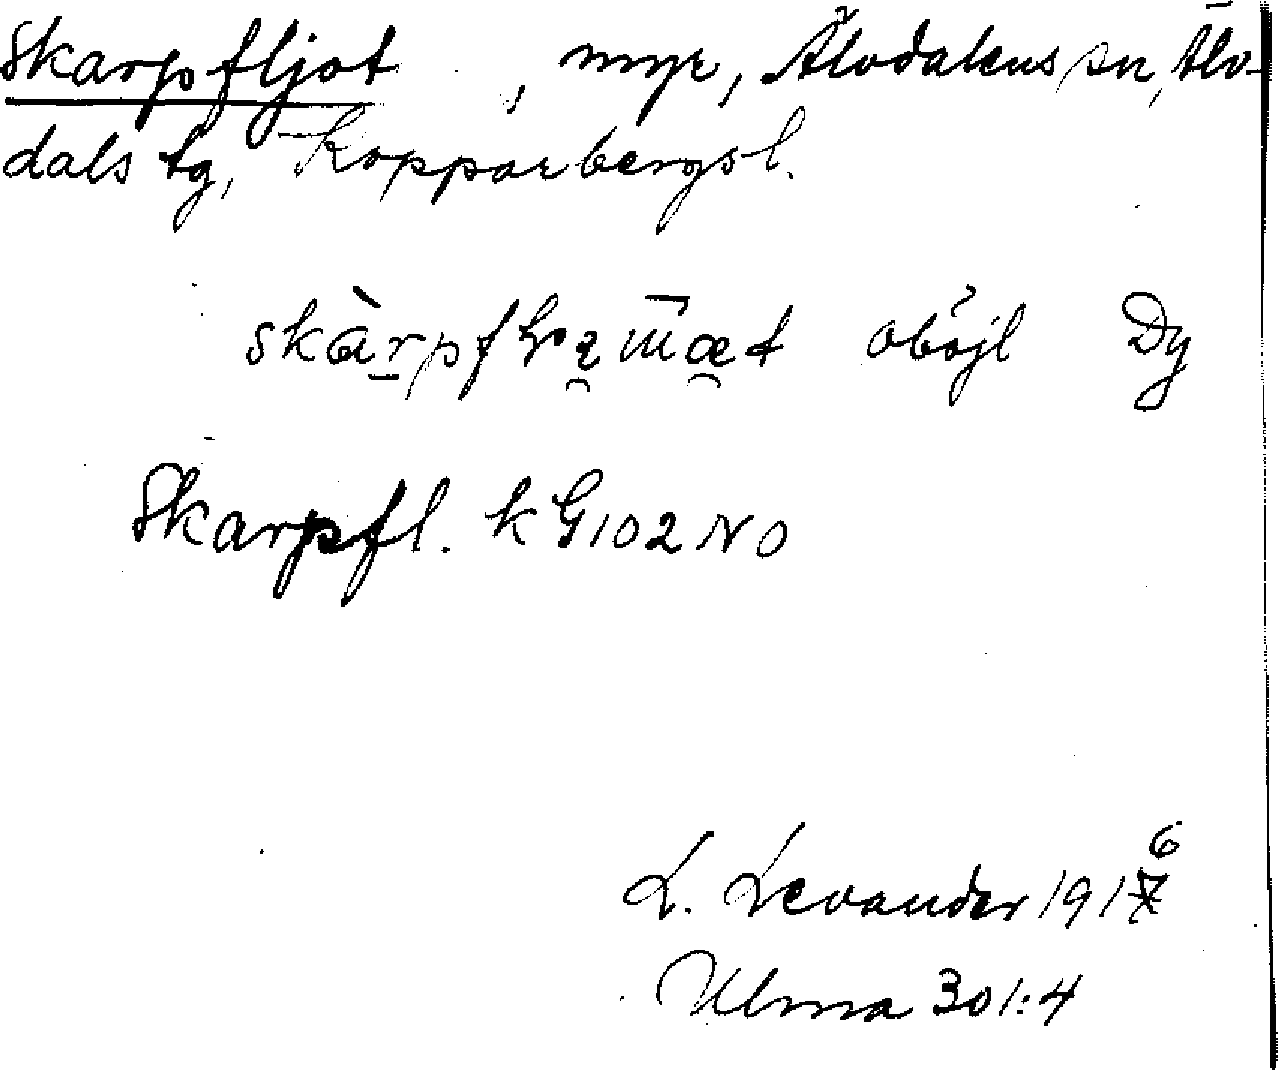 Skarpfljot , myr, Älvdalens sn, Älv-
dals tg, Kopparbergs l.
oböjl Dy
Skarpfl. k G102 NO
L. Levander 1916
Ulma 301:4